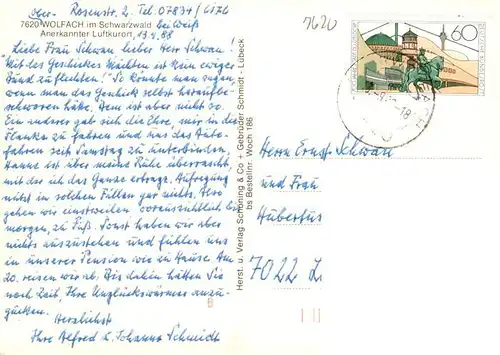 Ober- Rosenstr. 2. Tel. 07834/6176
7620 WOLFACH im Schwarzwald bei Weiß
Anerkannter Luftkurort, 13.4.88
Liebe Frau Schwan lieber Herr Schwan!
"Mit des Geschickes Mächten ist kein ewiger
Bund zu flechten!" So könnte man sagen,
wenn man das Geschick selbst heraufbe-
schworen hätte. Dem ist aber nicht so.
Ein anderer gab sich die Ehre, mir in die
Flanke zu fahren und uns das Auto-
fahren seit Samstag zu unterbinden.
Hanns ist über meine Ruhe überrascht,
mit der ich das Ganze ertrage. Aufregung
nützt in solchen Fällen gar nichts. Also
gehen wir einstweilen voraussichtlich bis
morgen, zu Fuß. Sonst haben wir aber
nichts auszustehen und fühlen uns
in unserer Pension wie zu Hause. Am
20. reisen wir ab. Bis dahin hätten Sie
noch Zeit, Ihre Unglückswürmer anzu-
gucken.
Herzlichst
Ihre Alfred u. Johanna Schmidt
Herst. u. Verlag Schöning & Co + Gebrüder Schmidt - Lübeck
bs Bestellnr. Woch 186
7620
60
Herrn Ernst Schwan
und Frau
Hubertus
7022 L